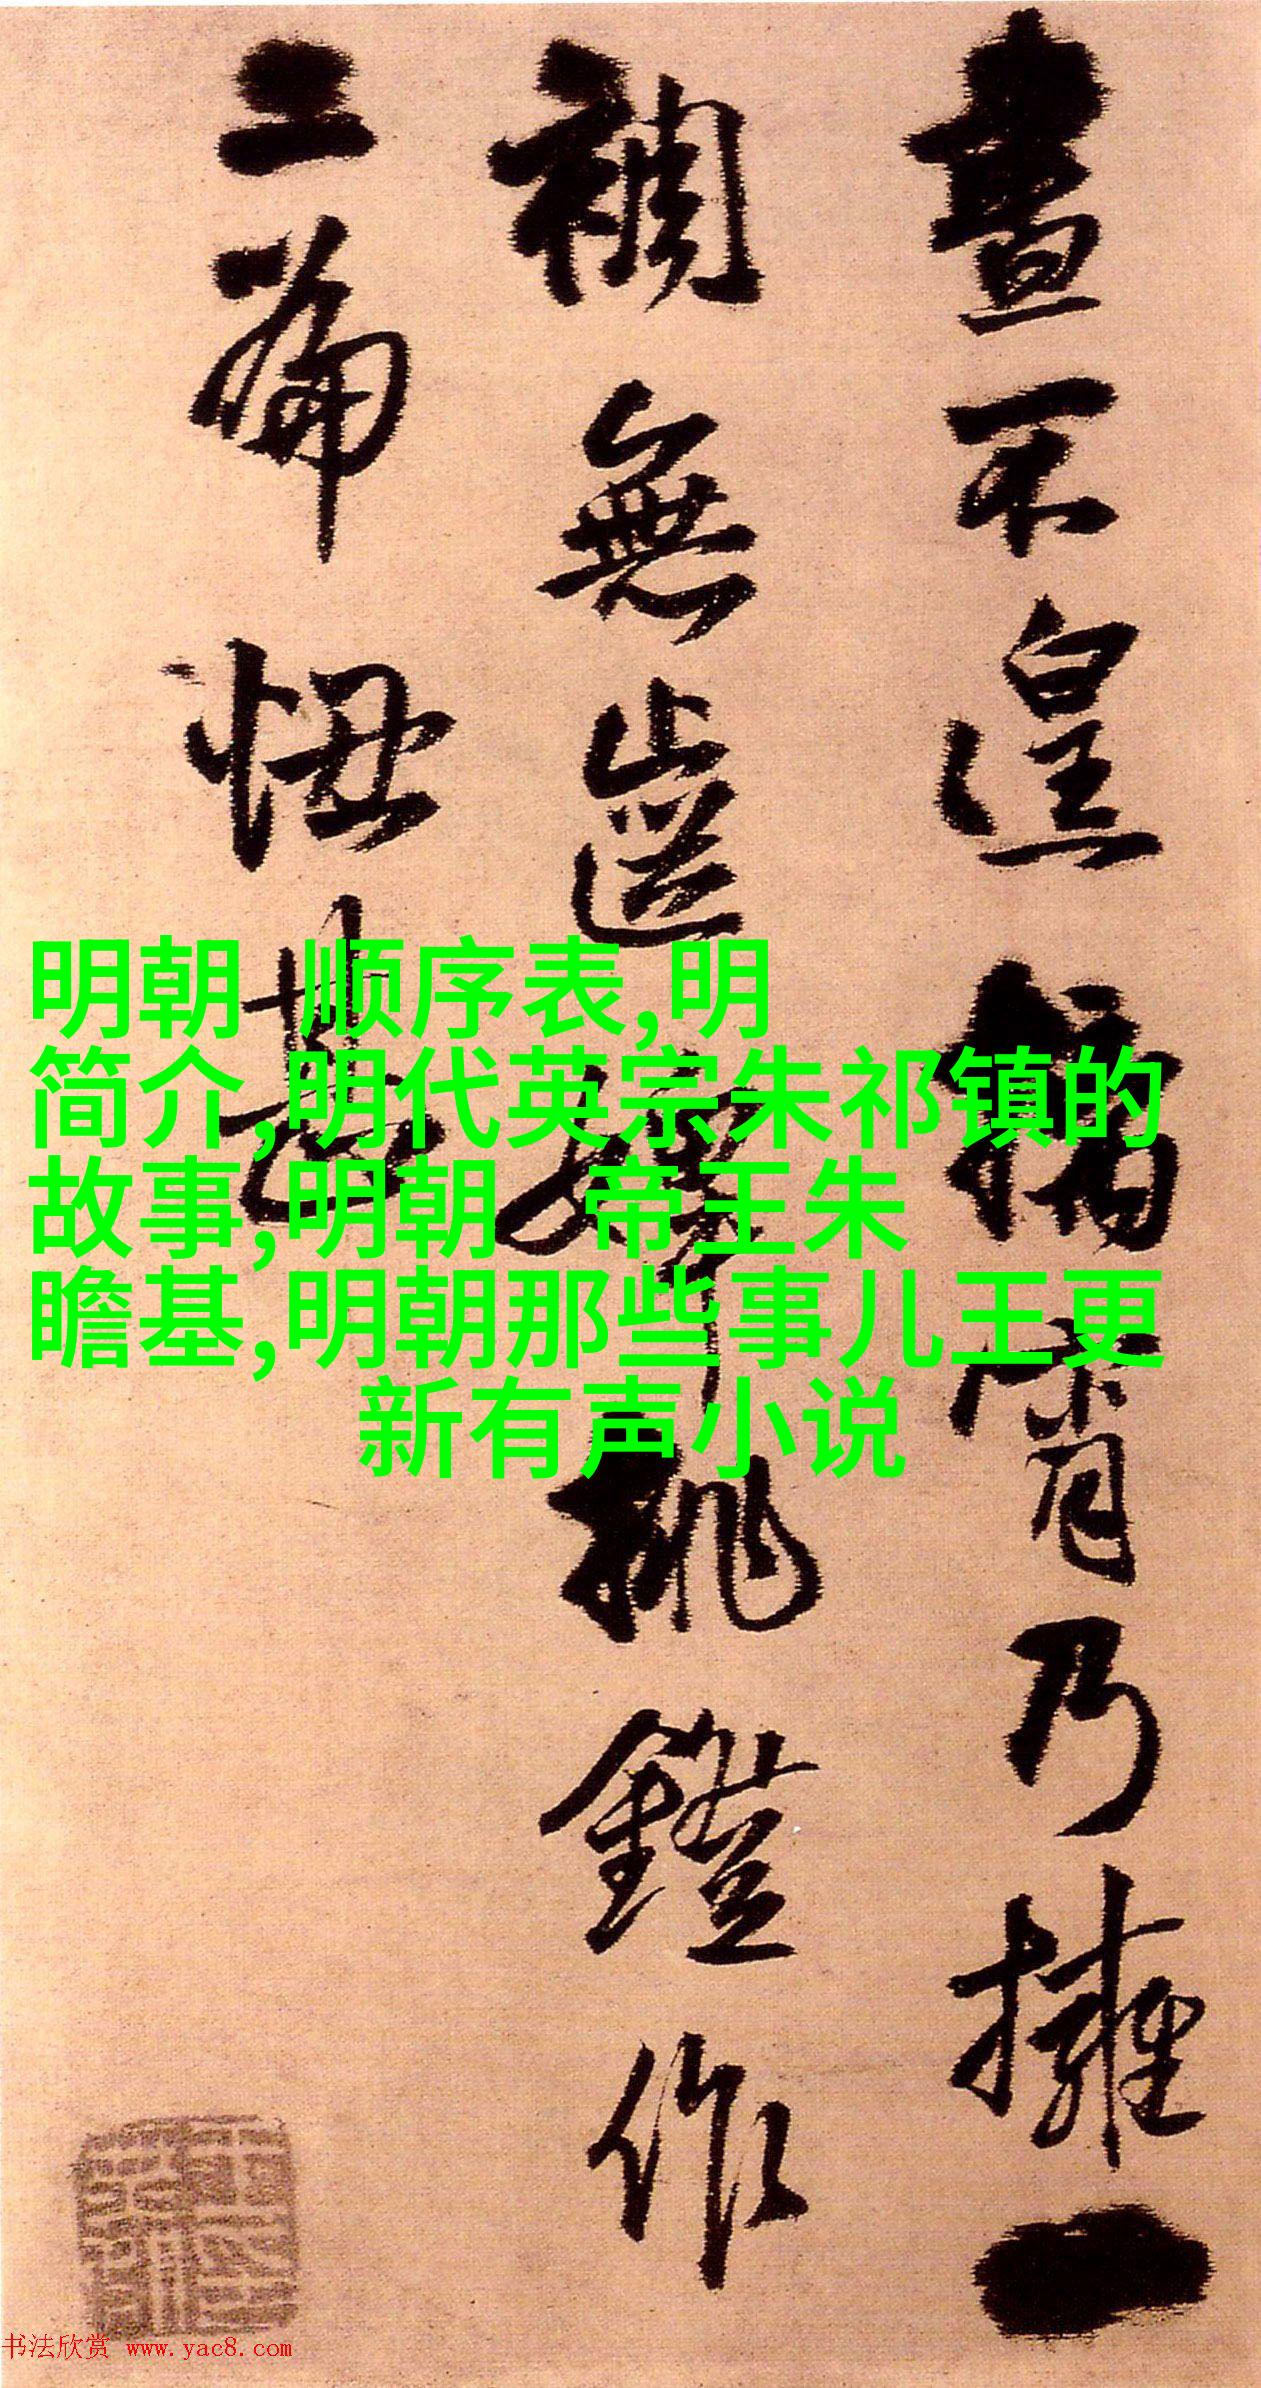 晝不遑宵乃擁一
裯無挑鐙作
二篇
明朝 顺序表,明
简介,明代英宗朱祁镇的
故事,明朝 帝王朱
瞻基,明朝那些事儿王更
新有声小说
书法欣赏 www.yac8.com